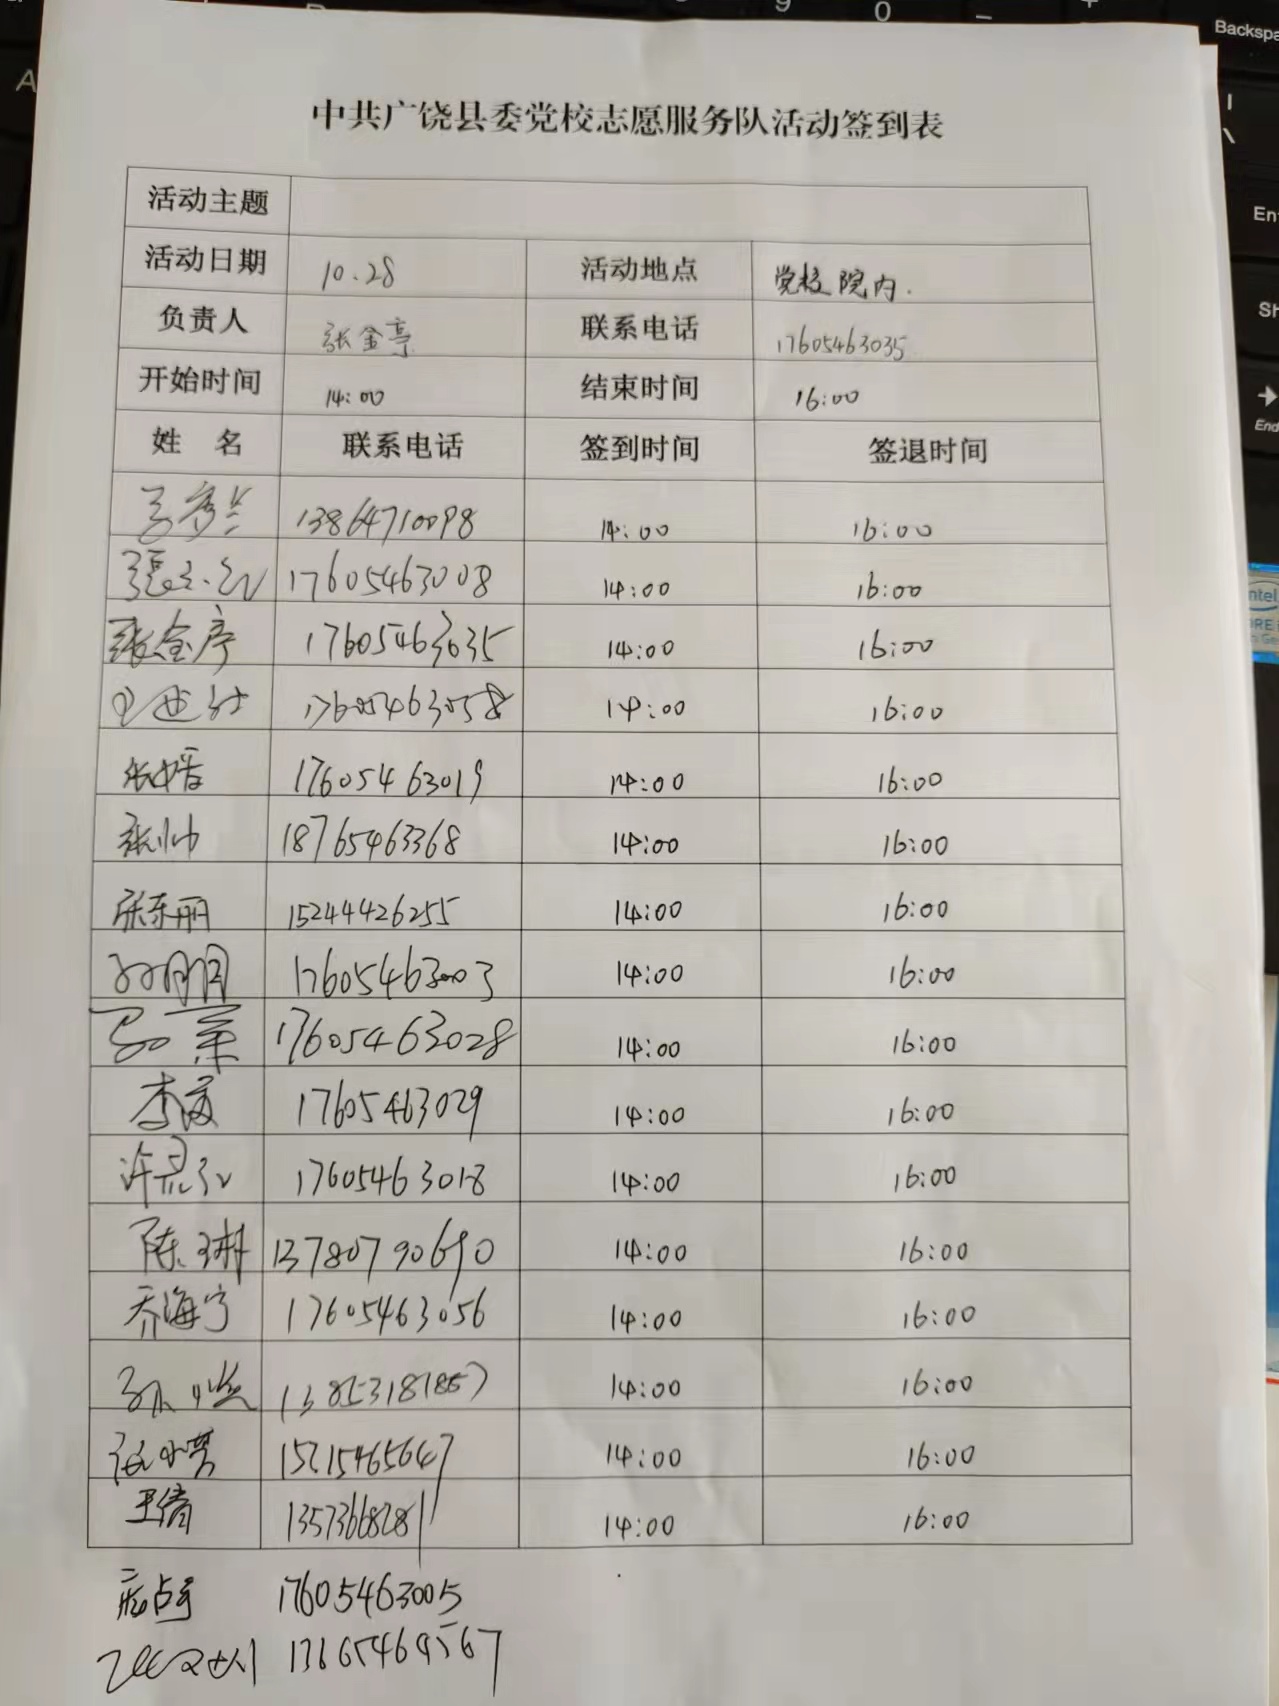 9 0 - +
Backspa
中共广饶县委党校志愿服务队活动签到表
活动主题
活动日期 10.28 活动地点 党校院内.
负责人 张金亭 联系电话 17605463035
开始时间 14:00 结束时间 16:00
姓 名 联系电话 签到时间 签退时间
13864710098 14:00 16:00
17605463008 14:00 16:00
张金亭 17605463035 14:00 16:00
17605463058 14:00 16:00
张婧 17605463019 14:00 16:00
张帅 18765463368 14:00 16:00
张东丽 15244426255 14:00 16:00
17605463003 14:00 16:00
17605463028 14:00 16:00
李波 17605463029 14:00 16:00
17605463018 14:00 16:00
陈琳 13780790690 14:00 16:00
乔海宁 17605463056 14:00 16:00
14:00 16:00
14:00 16:00
王倩 13573668281 14:00 16:00
17605463005
Ent
Sh
End
intel